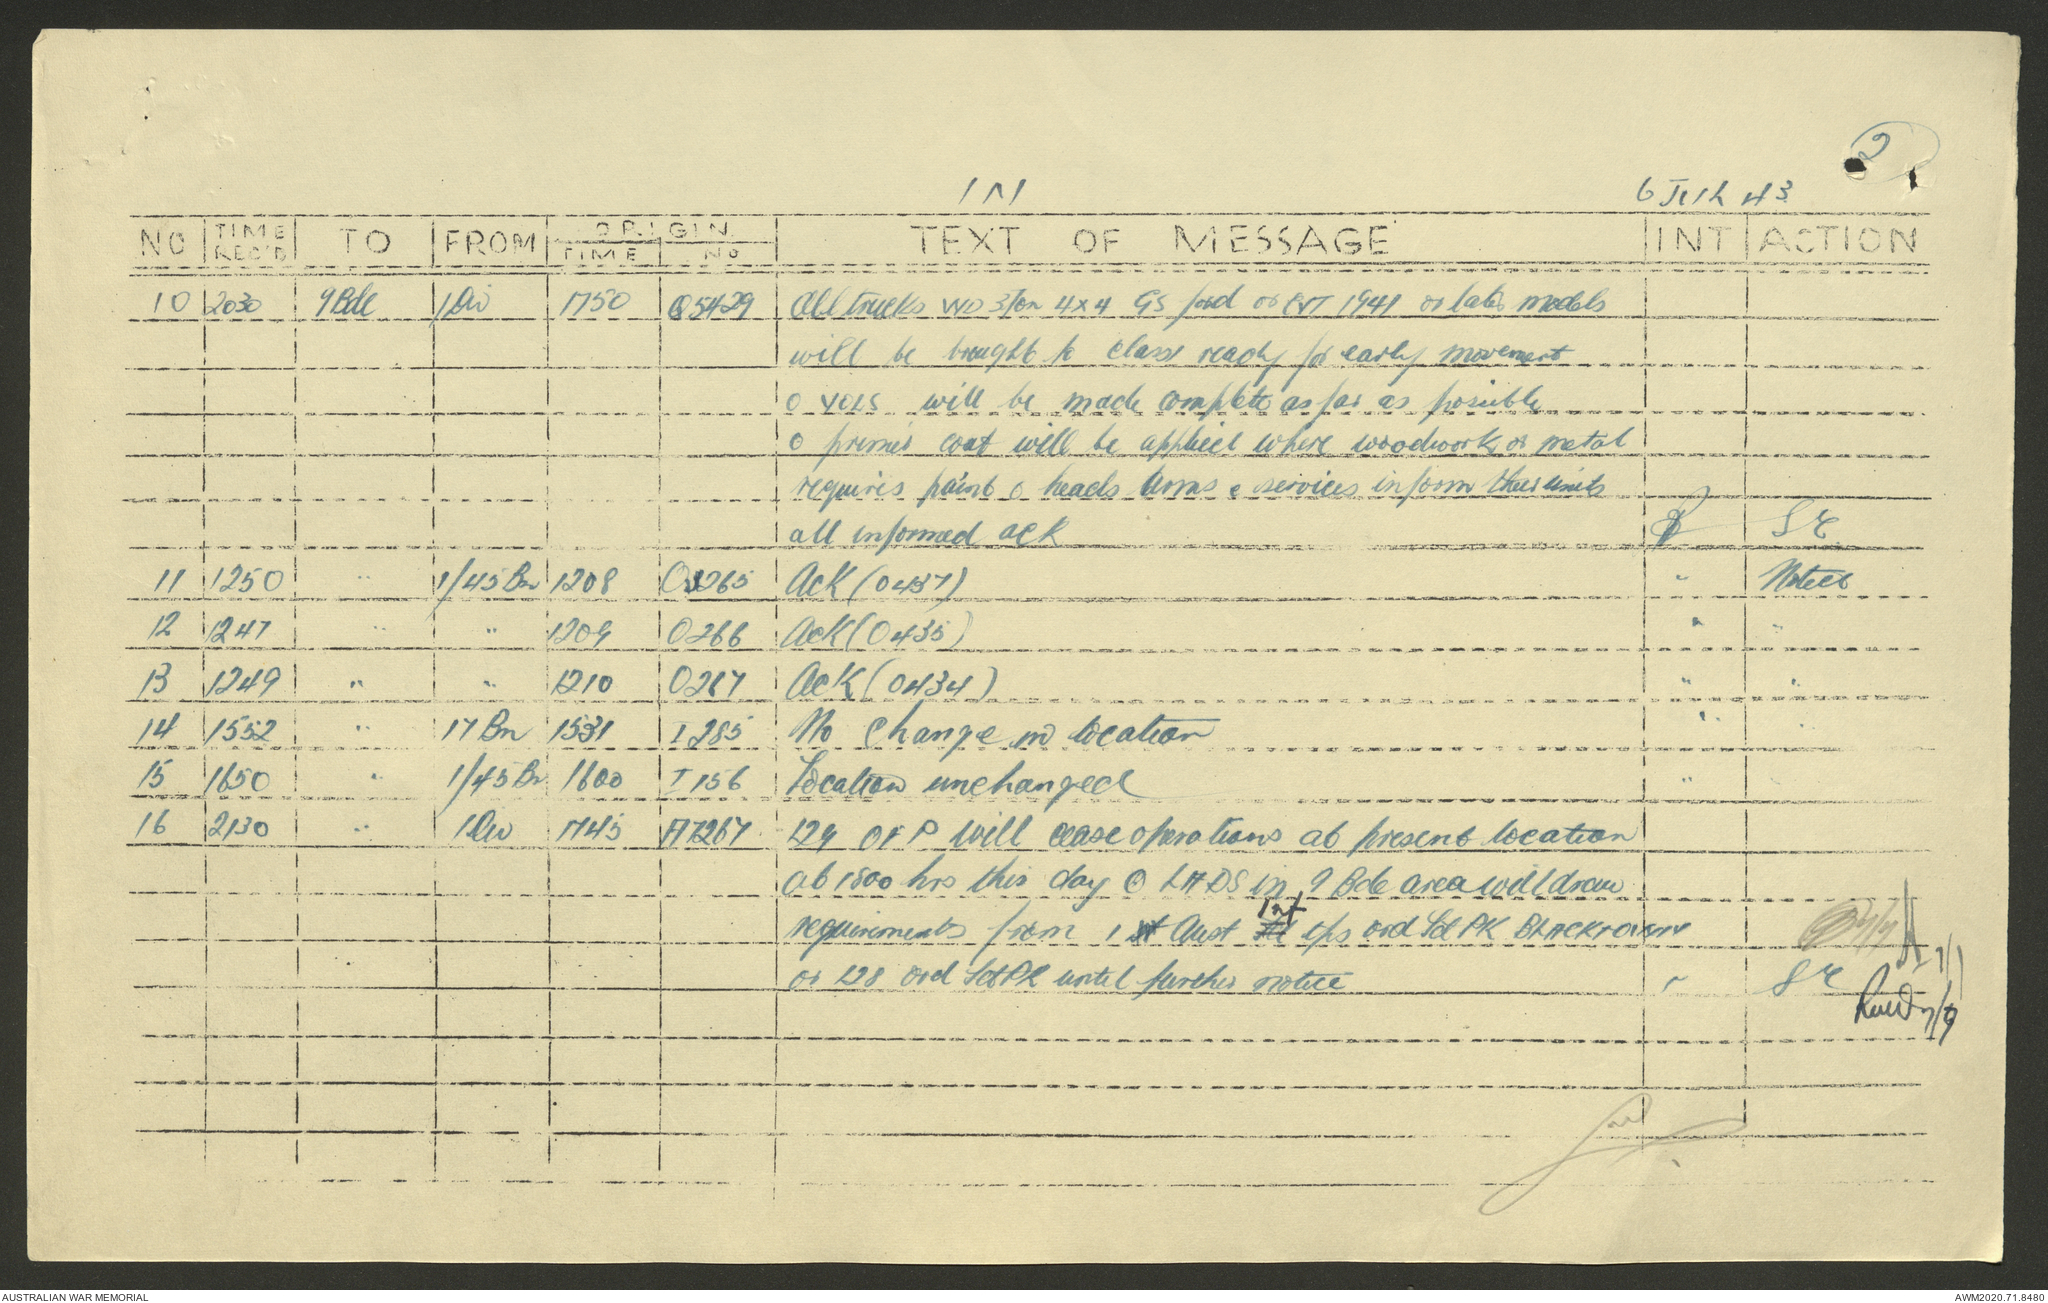 2
IN
6 July 43
NO | TIME REC'D | TO | FROM | ORIGIN TIME | NO | TEXT OF MESSAGE | INT | ACTION
10 | 2030 | 9 Bde | 1 Div | 1750 | Q5429 | All trucks WD 3 ton 4x4 GS ford or CVT 1941 or later models
will be brought to class ready for early movement
o vols will be made complete as far as possible
o primer coat will be applied where woodwork or metal
requires paint o heads arms & services inform their units
all informed ack | SC
11 | 1250 | " | 1/45 Bn | 1208 | O265 | Ack (O437) | " | Noted
12 | 1247 | " | " | 1209 | O266 | Ack (O435) | " | "
13 | 1249 | " | " | 1210 | O267 | Ack (O434) | " | "
14 | 1552 | " | 17 Bn | 1531 | I 285 | No change in location | "
15 | 1650 | " | 1/45 Bn | 1600 | I 156 | Location unchanged | "
16 | 2130 | " | 1 Div | 1745 | A7267 | 129 OFP will cease operations at present location
at 1800 hrs this day o LADS in 9 Bde area will draw
Int
requirements from 1 Aust tps ord fd PK BLACKTOWN
or 128 ord fd PK until further notice | " | SC
7/7
7/7
AUSTRALIAN WAR MEMORIAL
AWM2020.71.8480